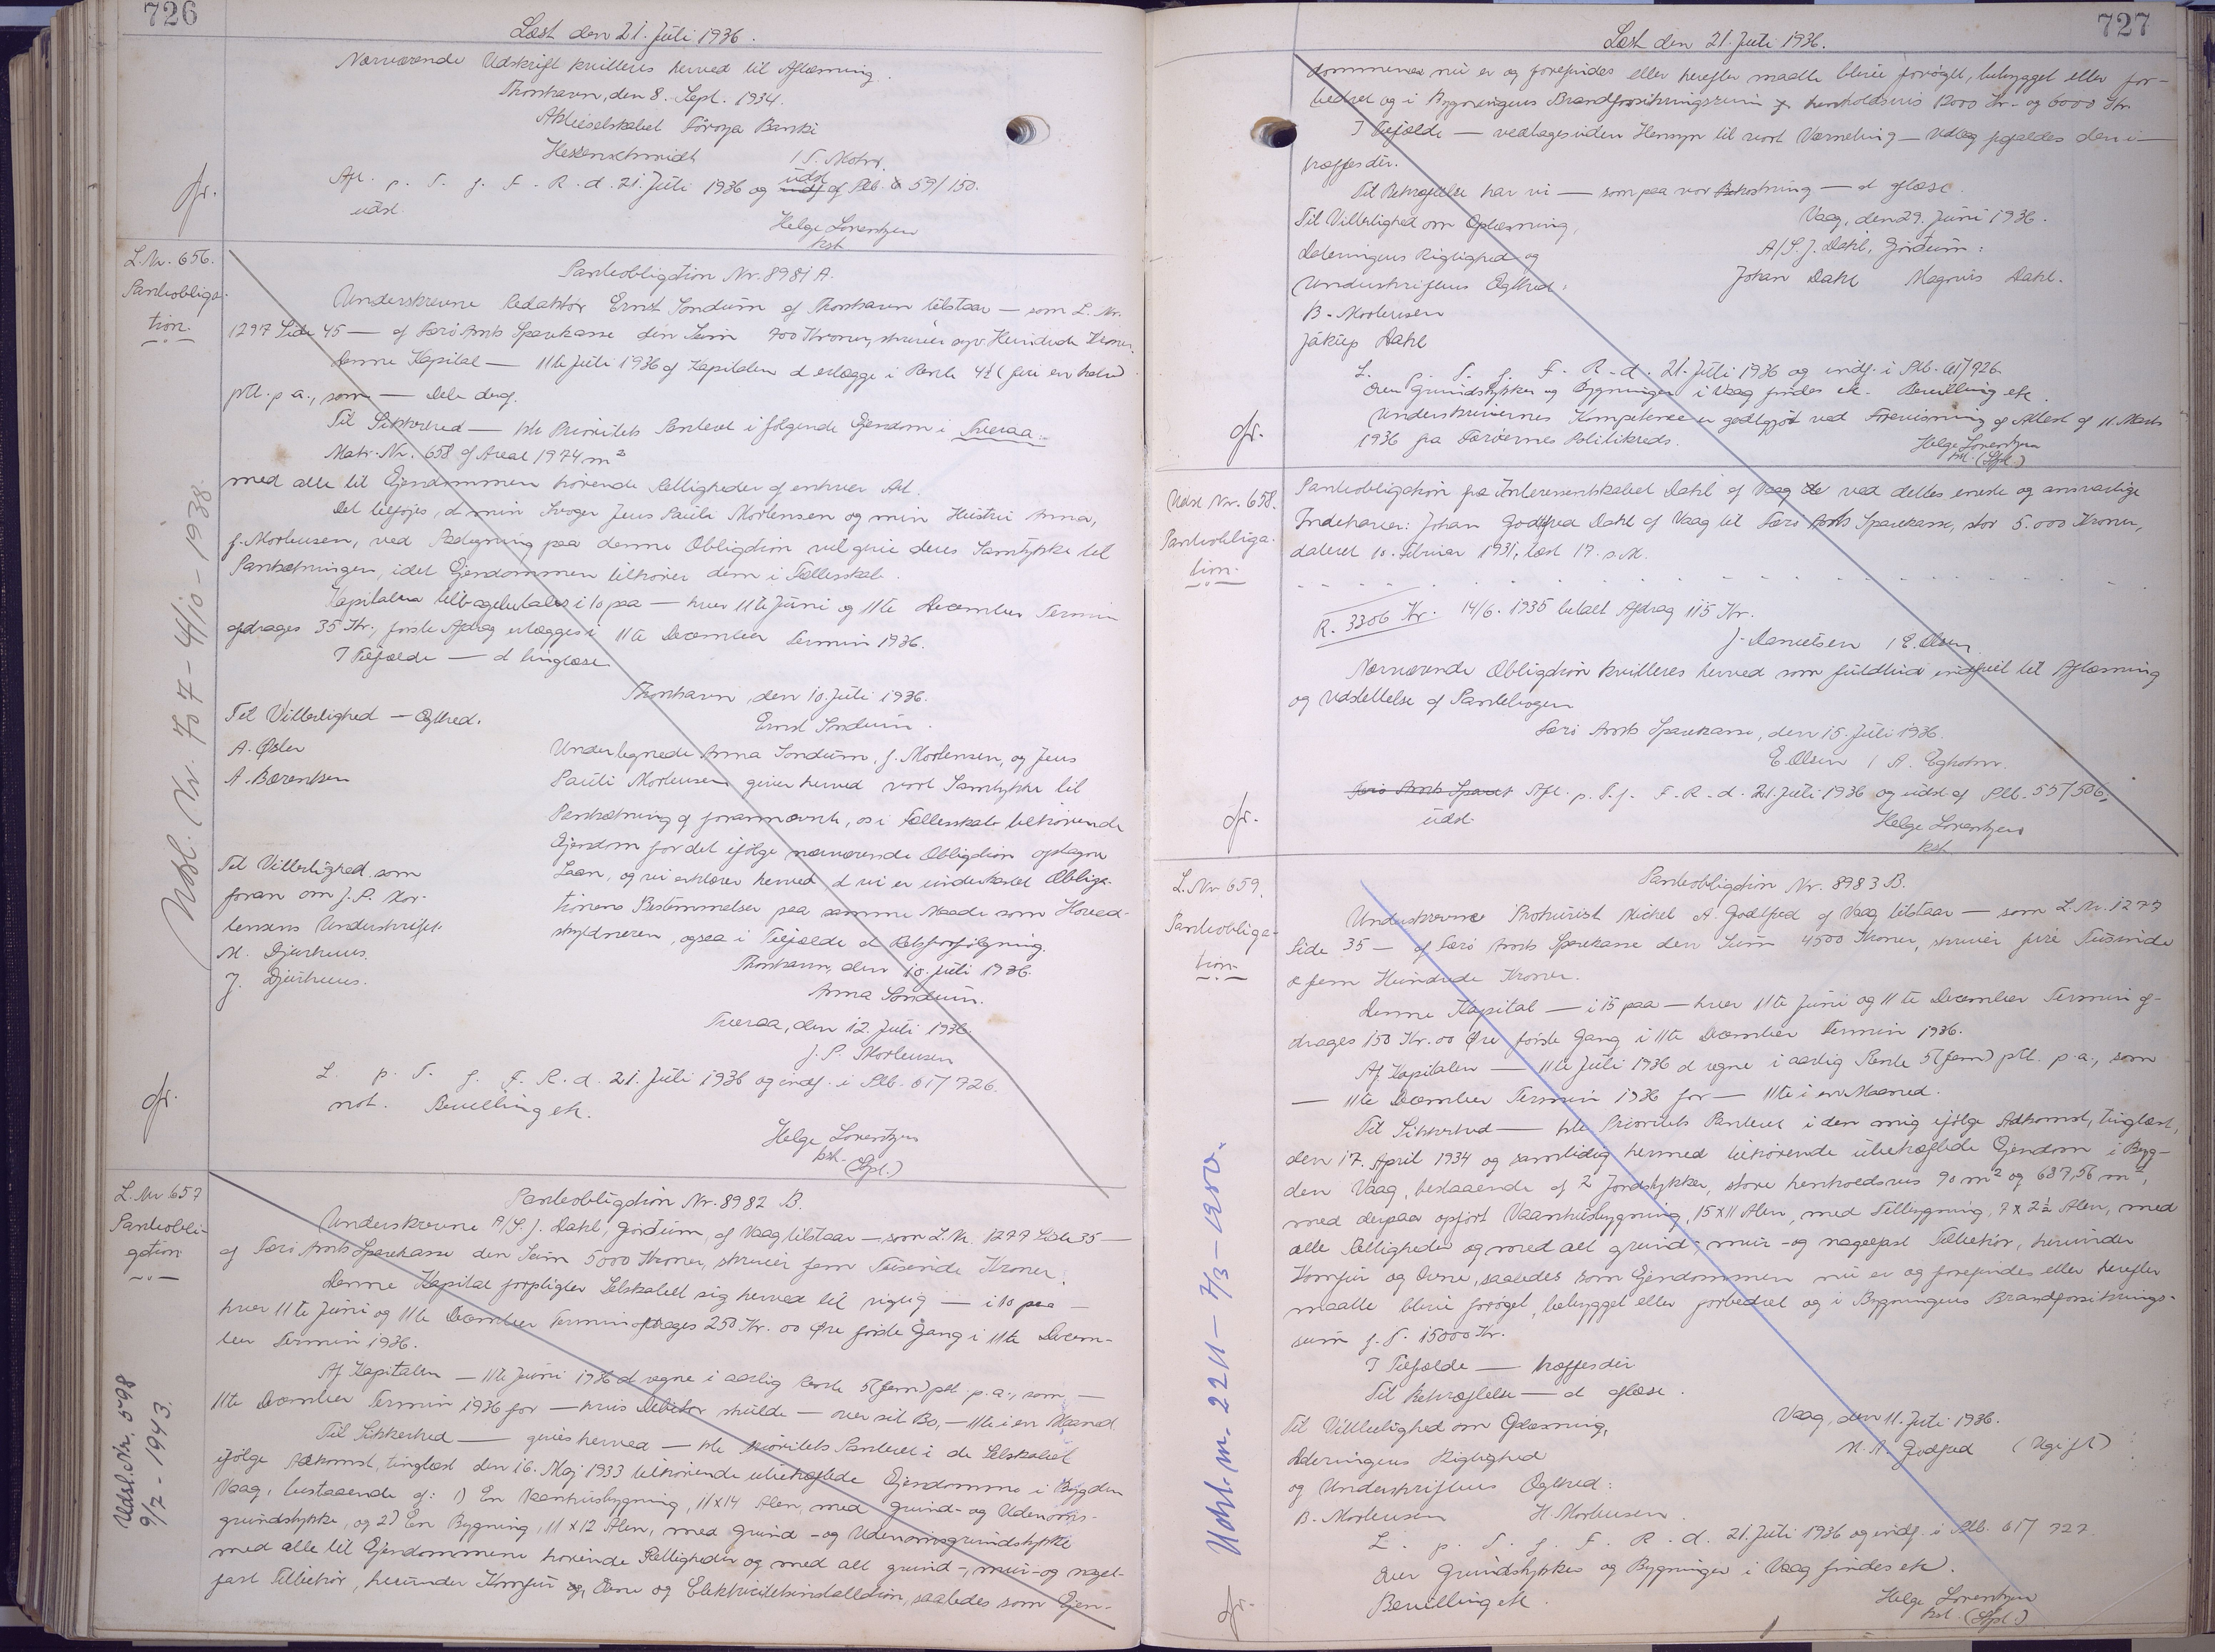 726
Læst den 21. Juli 1936.
Nærværende Udskrift kvitteres herved til Aflæsning.
Thorshavn, den 8. Sept. 1934.
Aktieselskabet Föroya Banki
Heskenschmidt / S. Mohr
Afl. p. T. f. F. R. d. 21. Juli 1936 og udsl af Plb. 59/150.
udsl.
Helge Lorentzen
kst.
fr.
L. Nr. 656.
Pantobliga-
tion.
Panteobligation Nr. 8981 A.
Underskrevne Redaktör Ernst Sondum af Thorshavn tilstaar — som L. Nr.
1297 Side 45 — af Færö Amts Sparekasse den Sum 700 Kroner, skriver syv Hundrede Kroner.
Denne Kapital — 11te Juli 1936 af Kapitalen at erlægge i Rente 4½ (fire en halv)
pCt. p a., som — Dele deraf.
Til Sikkerhed — 1ste Prioritets Panteret i følgende Ejendom i Tveraa:
Matr. Nr. 658 af Areal 1974 m²
med alle til Ejendommen hörende Rettigheder af enhver Art.
Det tilföjes, at min Svoger Jens Pauli Mortensen og min Hustru Anna,
f. Mortensen, ved Paategning paa denne Obligation vil give deres Samtykke til
Pantsætningen, idet Ejendommen tilhörer dem i Fællesskab.
Kapitalen tilbagebetales i 10 paa — hver 11te Juni og 11te December Termin
afdrages 35 Kr., förste Afdrag erlægges i 11te December Termin 1936.
I Tilfælde — at tinglæse.
Thorshavn, den 10. Juli 1936.
Til Vitterlighed — Ægthed.
Ernst Sondum.
A. Øster
A. Bærentsen
Undertegnede Anna Sondum, f. Mortensen, og Jens
Pauli Mortensen giver herved vort Samtykke til
Pantsætning af forannævnte, os i Fællesskab tilhörende
Ejendom for det ifölge nærværende Obligation optagne
Laan, og vi erklærer herved at vi er underkastet Obliga-
tionens Bestemmelser paa samme Maade som Hoved-
skyldneren, ogsaa i Tilfælde af Retsforfölgning.
Til Vitterlighed som
foran om J. P. Mor-
tensens Underskrift.
M. Djurhuus.
J. Djurhuus.
Thorshavn, den 10. Juli 1936.
Anna Sondum.
Tveraa, den 12. Juli 1936.
J. P. Mortensen
L. p. T. f. F. R. d. 21. Juli 1936 og indf. i Plb. 61/726.
not. Bevilling ek.
Helge Lorentzen
kst. (Stpl.)
fr.
Udsl. Nr. 707 - 4/10 - 1938.
L. Nr 657
Panteobli-
gation
Panteobligation Nr. 8982 B.
Underskrevne A/S. J. Dahl, Jordum, af Vaag tilstaar — som L. Nr. 1277 Side 35 —
af Færö Amts Sparekasse den Sum 5000 Kroner, skriver fem Tusinde Kroner.
Denne Kapital forpligter Selskabet sig herved til rigtig — i 10 paa —
hver 11te Juni og 11te December Termin afdrages 250 Kr. 00 Øre förste Gang i 11te Decem-
ber Termin 1936.
Af Kapitalen — 11te Juni 1936 at regne i aarlig Rente 5 (fem) pCt. p. a., som —
11te December Termin 1936 for — hvis Debitor skulde — over sit Bo, — 11te i en Maaned.
Til Sikkerhed — gives herved — 1ste Prioritets Panteret i de Selskabet
ifölge Adkomst, tinglæst den 16. Maj 1933 tilhörende ubehæftede Ejendomme i Bygden
Vaag, bestaaende af: 1) En Vaanhusbygning, 11 x 14 Alen, med Grund- og Udenoms-
grundstykke, og 2) En Bygning, 11 x 12 Alen, med Grund- og Udenomsgrundstykke
med alle til Ejendommene hörende Rettigheder og med alt grund-, mur- og nagel-
fast Tilbehör, herunder Komfur og, Ovne og Elektricitetsinstallation, saaledes som Ejen-
Udsl. Nr. 598
9/7 - 1943.
727
Læst den 21. Juli 1936.
dommene nu er og forefindes eller herefter maatte blive forøget, bebygget eller for-
bedret og i Bygningens Brandforsikringssum f. henholdsvis 12000 Kr. og 6000 Kr.
I Tilfælde — vedtages uden Hensyn til vort Værneting — Udlæg paafaldes den i —
træffes dir.
Til Bekræftelse har vi — som paa vor Bekostning — at aflæse.
Til Vitterlighed om Oplæsning,
Vaag, den 29. Juni 1936.
Dateringens Rigtighed og
A/S. J. Dahl, Jordum:
Underskriftens Ægthed:
Johan Dahl Magnus Dahl.
B. Mortensen
Jákup Dahl
L. p. T. f. F. R. d. 21. Juli 1936 og indf. i Plb. 61/726.
Over Grundstykker og Bygninger i Vaag findes ek. Bevilling ek.
Underskrivernes Kompetence er godtgjort ved Forevisning af Attest af 11. Marts
1936 fra Færöernes Politikreds.
Helge Lorentzen
kst. (Stpl.)
fr.
Udsl Nr. 658.
Panteobliga-
tion.
Panteobligation fra Interessentskabet Dahl af Vaag ved dettes eneste og ansvarlige
Indehaver: Johan Godtfred Dahl af Vaag til Færö Amts Sparekasse, stor 5.000 Kroner,
dateret 10. Februar 1931, læst 17. s. M.
R. 3306 Kr. 14/6. 1935 betalt Afdrag 115 Kr.
J. Danielsen / E. Olsen
Nærværende Obligation kvitteres herved som fuldtud indfriet til Aflæsning
og Udslettelse af Pantebogen
Færö Amts Sparekasse, den 15. Juli 1936.
E. Olsen / A. Egholm.
Færö Amts Sparek Afl. p. T. f. F. R. d. 21. Juli 1936 og udsl af Plb. 55/506.
udsl.
Helge Lorentzen
kst.
fr.
L. Nr 659.
Panteobliga-
tion.
Panteobligation Nr. 8983 B.
Underskrevne Prokurist Michel A. Godtfred af Vaag tilstaar — som L. Nr. 1277
Side 35 — af Færö Amts Sparekasse den Sum 4500 Kroner, skriver fire Tusinde
o fem Hundrede Kroner.
Denne Kapital — i 15 paa — hver 11te Juni og 11te December Termin af-
drages 150 Kr. 00 Øre förste Gang i 11te December Termin 1936.
Af Kapitalen — 11te Juli 1936 at regne i aarlig Rente 5 (fem) pCt. p. a., som
— 11te December Termin 1936 for — 11te i en Maaned.
Til Sikkerhed — 1ste Prioritets Panteret i den mig ifölge Adkomst, tinglæst,
den 17. April 1934 og samtidig hermed tilhörende ubehæftede Ejendom i Byg-
den Vaag, bestaaende af 2 Jordstykker, store henholdsvis 90 m² og 687,56 m²,
med derpaa opfört Vaanhusbygning, 15 x 11 Alen, med Tilbygning, 7 x 2½ Alen, med
alle Rettigheder og med alt grund-, mur- og nagelfast Tilbehör, herunder
Komfur og Ovne, saaledes som Ejendommen nu er og forefindes eller herefter
maatte blive forøget, bebygget eller forbedret og i Bygningens Brandforsikrings-
sum f. T. 15000 Kr.
I Tilfælde — træffes dir
Til Bekræftelse — at aflæse.
Til Vitterlighed om Oplæsning,
Vaag, den 11. Juli 1936.
Dateringens Rigtighed
M. A. Godtfred (Ugift)
og Underskriftens Ægthed:
B. Mortensen H. Mortensen
L. p. T. f. F. R. d. 21. Juli 1936 og indf. i Plb. 61/727.
Over Grundstykker og Bygninger i Vaag findes ek.
Bevilling ek.
Helge Lorentzen
kst. (Stpl.)
fr.
Udsl. nr. 2211 - 7/3 - 1200.